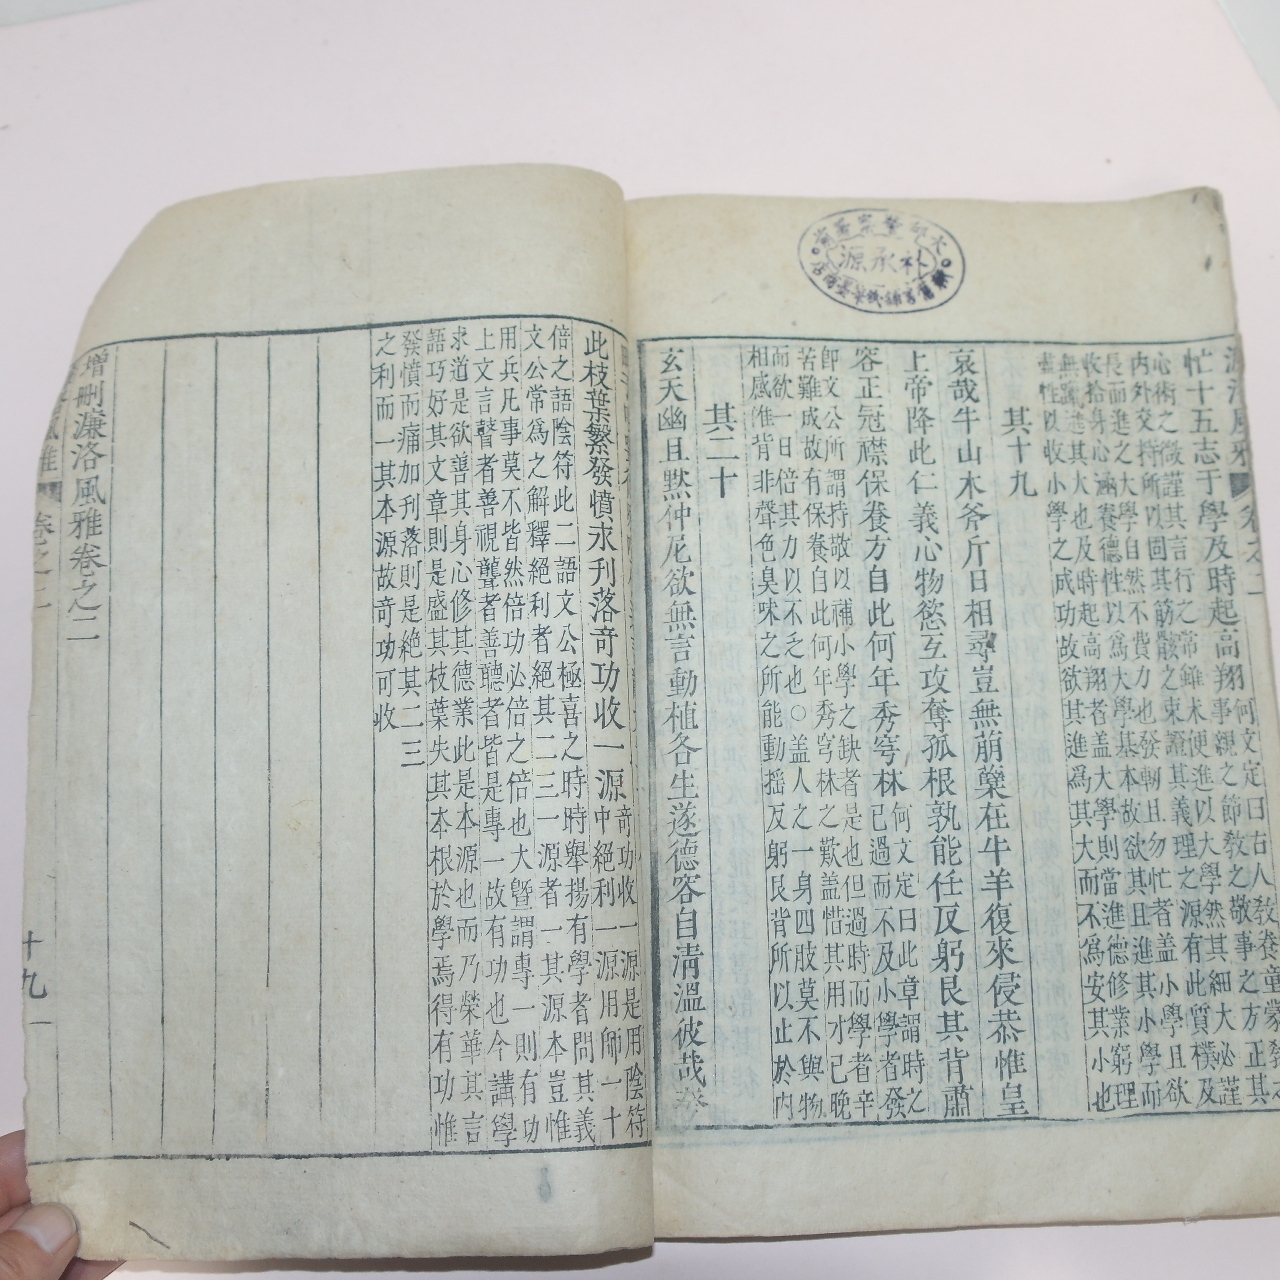 朴承源
濂洛風雅 卷之二
忙十五志于學及時起高翔
何文定曰古人敎養童蒙敎
事親之節敎之敬事之方正其
心術之微謹其言行之常雖未便進以大學然其細大必謹
內外交持所以固其筋骸之束證其義理之源有此質樸及
長而進之大學自然不費力也發軔且勿忙者蓋小學且欲
收拾身心涵養德性以爲大學基本故欲其且進其小學而
無躐進其大也及時起高翔者蓋大學則當進德修業窮理
盡性以收小學之成功故欲其進爲其大而不爲安其小也
其十九
哀哉牛山木斧斤日相尋豈無萠蘖在牛羊復來侵恭惟皇
上帝降此仁義心物慾互攻奪孤根孰能任反躬艮其背肅
容正冠襟保養方自此何年秀穹林
何文定曰此章謂時之
已過而不及小學者發
卽文公所謂持敬以補小學之缺者是也但過時而學者辛
苦難成故有保養自此何年秀穹林之歎盖惜其用才已晩
而欲一日倍其力以不乏也○盖人之一身四肢莫不與物
相感惟背非聲色臭味之所能動搖反躬艮背所以止於內
其二十
玄天幽且默仲尼欲無言動植各生遂德容自淸溫彼哉夸
此枝葉繁發憤永刋落奇功收一源
奇功收一源是用陰符
中絕利一源用師一十
倍之語陰符此二語文公極喜之時時舉揚有學者問其義
文公常爲之解釋絕利者絕其二三一源者一其源本豈惟
用兵凡事莫不皆然倍功必倍之倍也大曁謂專一則有功
上文言瞽者善視聾者善聽者皆是專一故有功也今講學
求道是欲善其身心修其德業此是本源也而乃榮華其言
語巧好其文章則是盛其枝葉失其本根於學焉得有功惟
發憤而痛加刋落則是絕其二三
之利而一其本源故奇功可收
增刪濂洛風雅卷之二
風雅 卷之二
十九